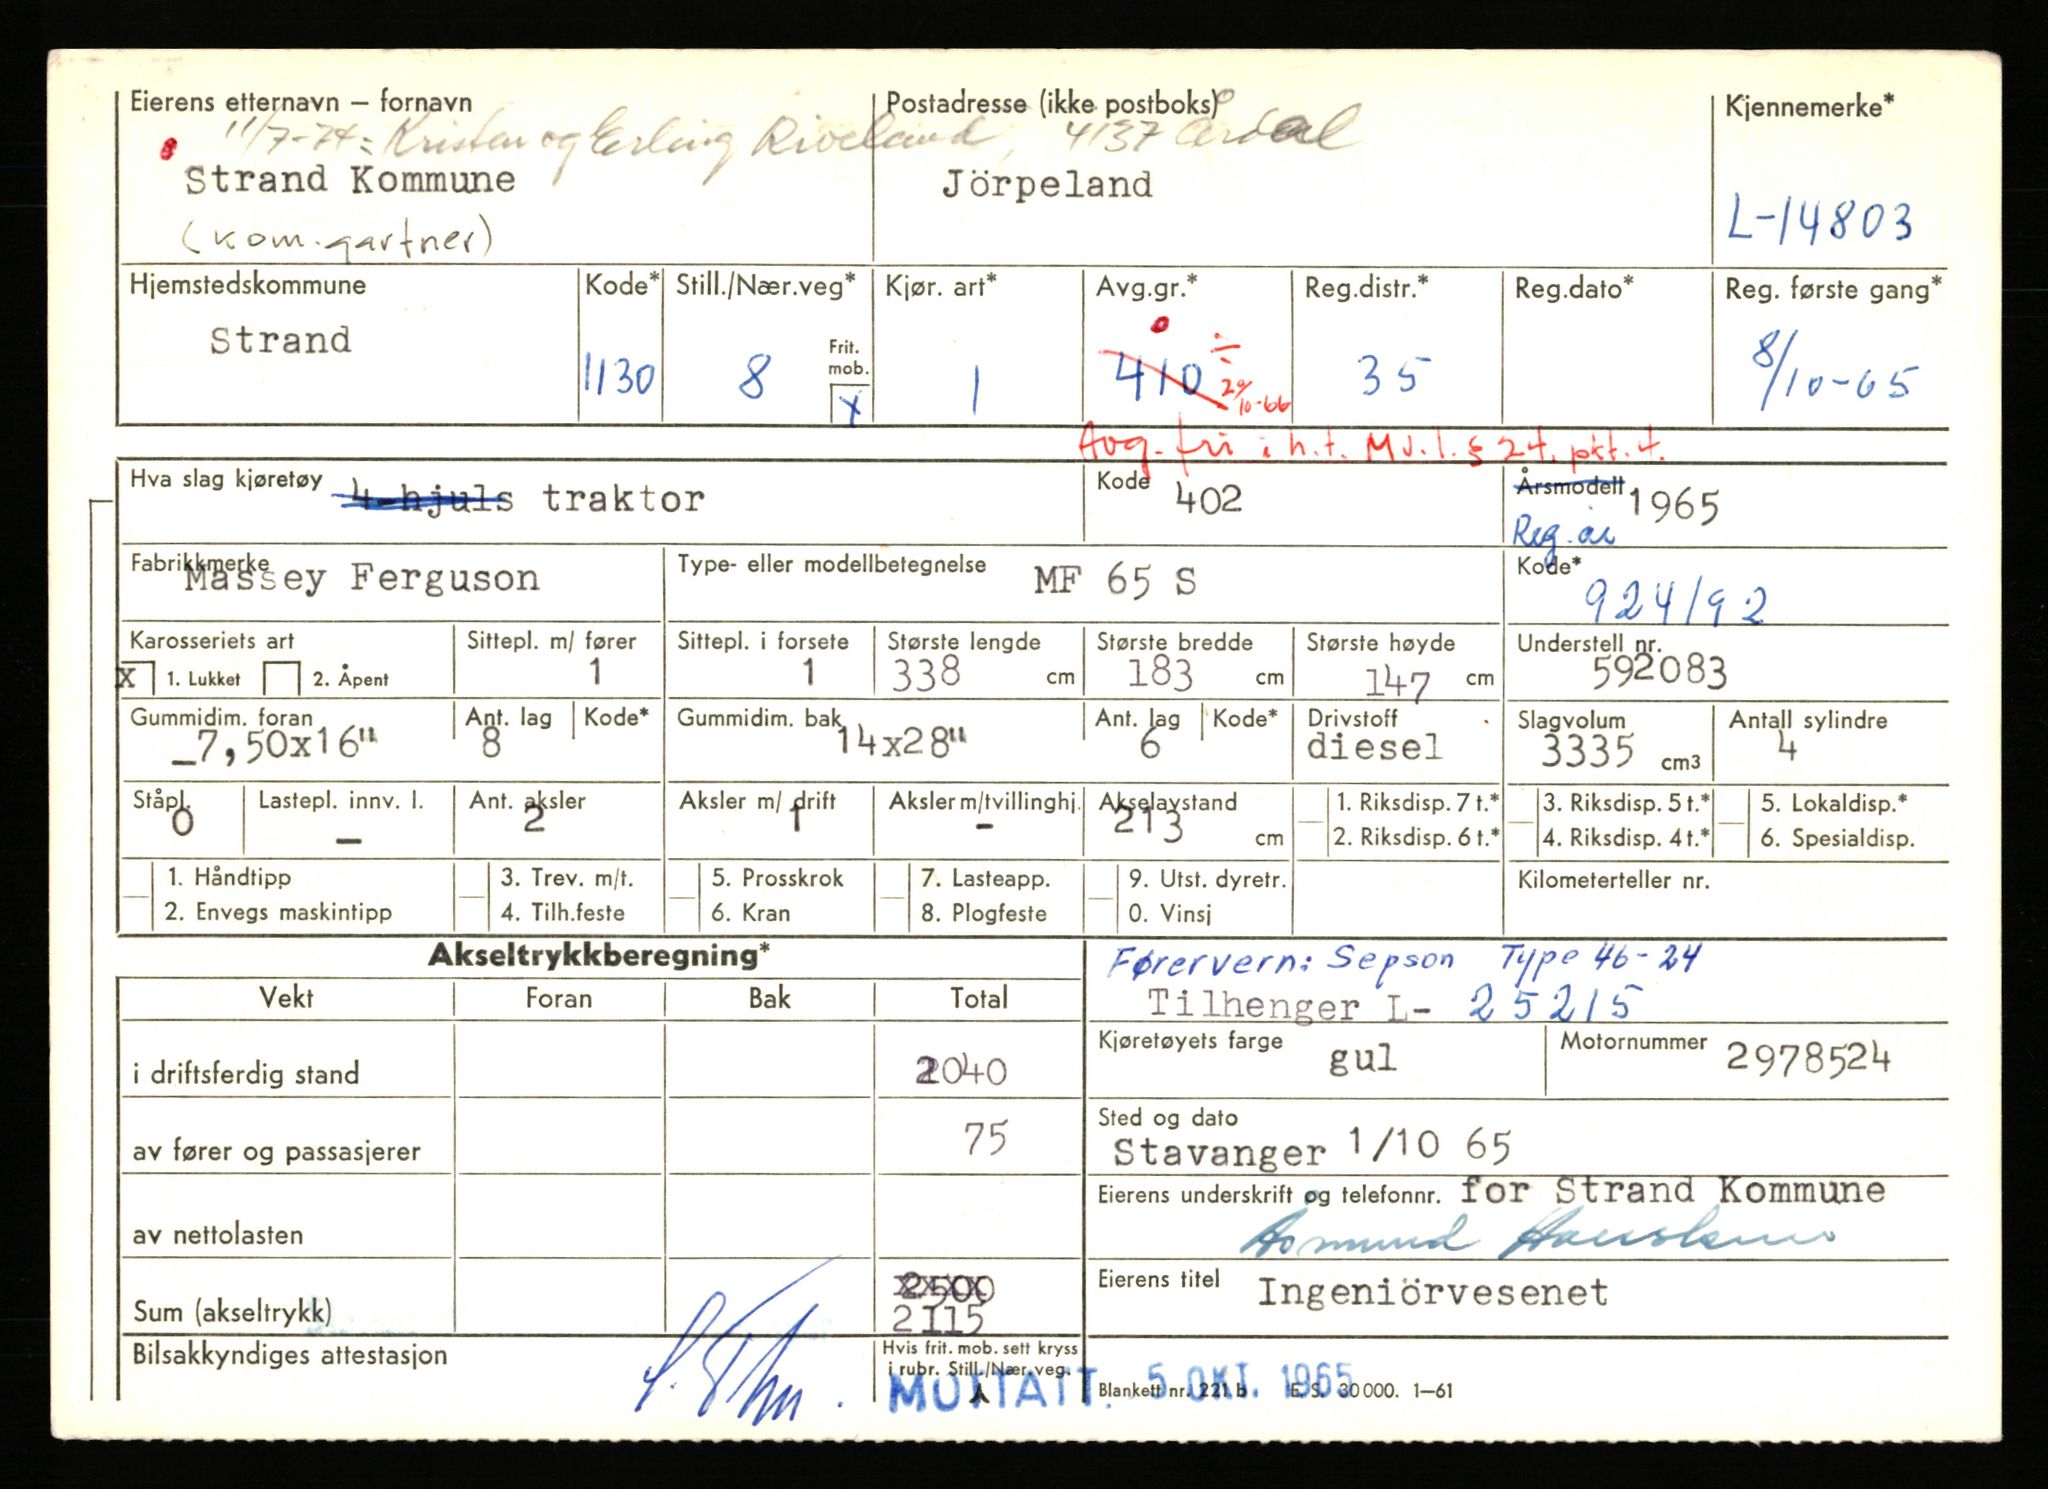 Eierens etternavn – fornavn
Postadresse (ikke postboks)
Kjennemerke*
11/7-74: Kristen og Erling Riveland, 4137 Årdal
Strand Kommune
Jörpeland
(kom.gartner)
L-14803
Hjemstedskommune
Kode*
Still./Nær.veg*
Kjør. art*
Avg.gr.*
Reg.distr.*
Reg.dato*
Reg. første gang*
Strand
1130
8
Frit. mob.
X
1
410
÷ 20/10-66
35
8/10-65
Avg. fri i h.t. Mv.l. § 24. pkt. 4.
Hva slag kjøretøy
4-hjuls traktor
Kode
402
Årsmodell
1965
Reg. år
Fabrikkmerke
Massey Ferguson
Type- eller modellbetegnelse
MF 65 S
Kode*
924/92
Karosseriets art
Sittepl. m/ fører
Sittepl. i forsete
Største lengde
Største bredde
Største høyde
Understell nr.
X 1. Lukket 2. Åpent
1
1
338 cm
183 cm
147 cm
592083
Gummidim. foran
Ant. lag
Kode*
Gummidim. bak
Ant. lag
Kode*
Drivstoff
Slagvolum
Antall sylindre
7,50x16"
8
14x28"
6
diesel
3335 cm3
4
Ståpl.
Lastepl. innv. l.
Ant. aksler
Aksler m/ drift
Aksler m/tvillinghj.
Akselavstand
1. Riksdisp. 7 t.*
3. Riksdisp. 5 t.*
5. Lokaldisp.*
0
–
2
1
-
213 cm
2. Riksdisp. 6 t.*
4. Riksdisp. 4 t.*
6. Spesialdisp.
1. Håndtipp
3. Trev. m/t.
5. Prosskrok
7. Lasteapp.
9. Utst. dyretr.
Kilometerteller nr.
2. Envegs maskintipp
4. Tilh.feste
6. Kran
8. Plogfeste
0. Vinsj
Akseltrykkberegning*
Førervern: Sepson Type 46-24
Vekt
Foran
Bak
Total
Tilhenger L- 25215
Kjøretøyets farge
gul
Motornummer
2978524
i driftsferdig stand
2040
Sted og dato
Stavanger 1/10 65
av fører og passasjerer
75
Eierens underskrift og telefonnr.
for Strand Kommune
av nettolasten
Åsmund
Eierens titel
Ingeniörvesenet
2500
Sum (akseltrykk)
2115
Bilsakkyndiges attestasjon
Hvis frit. mob. sett kryss
i rubr. Still./Nær.veg.
MOTTATT. 5. OKT. 1965
Blankett nr. 221 b E. S. 30 000. 1–61